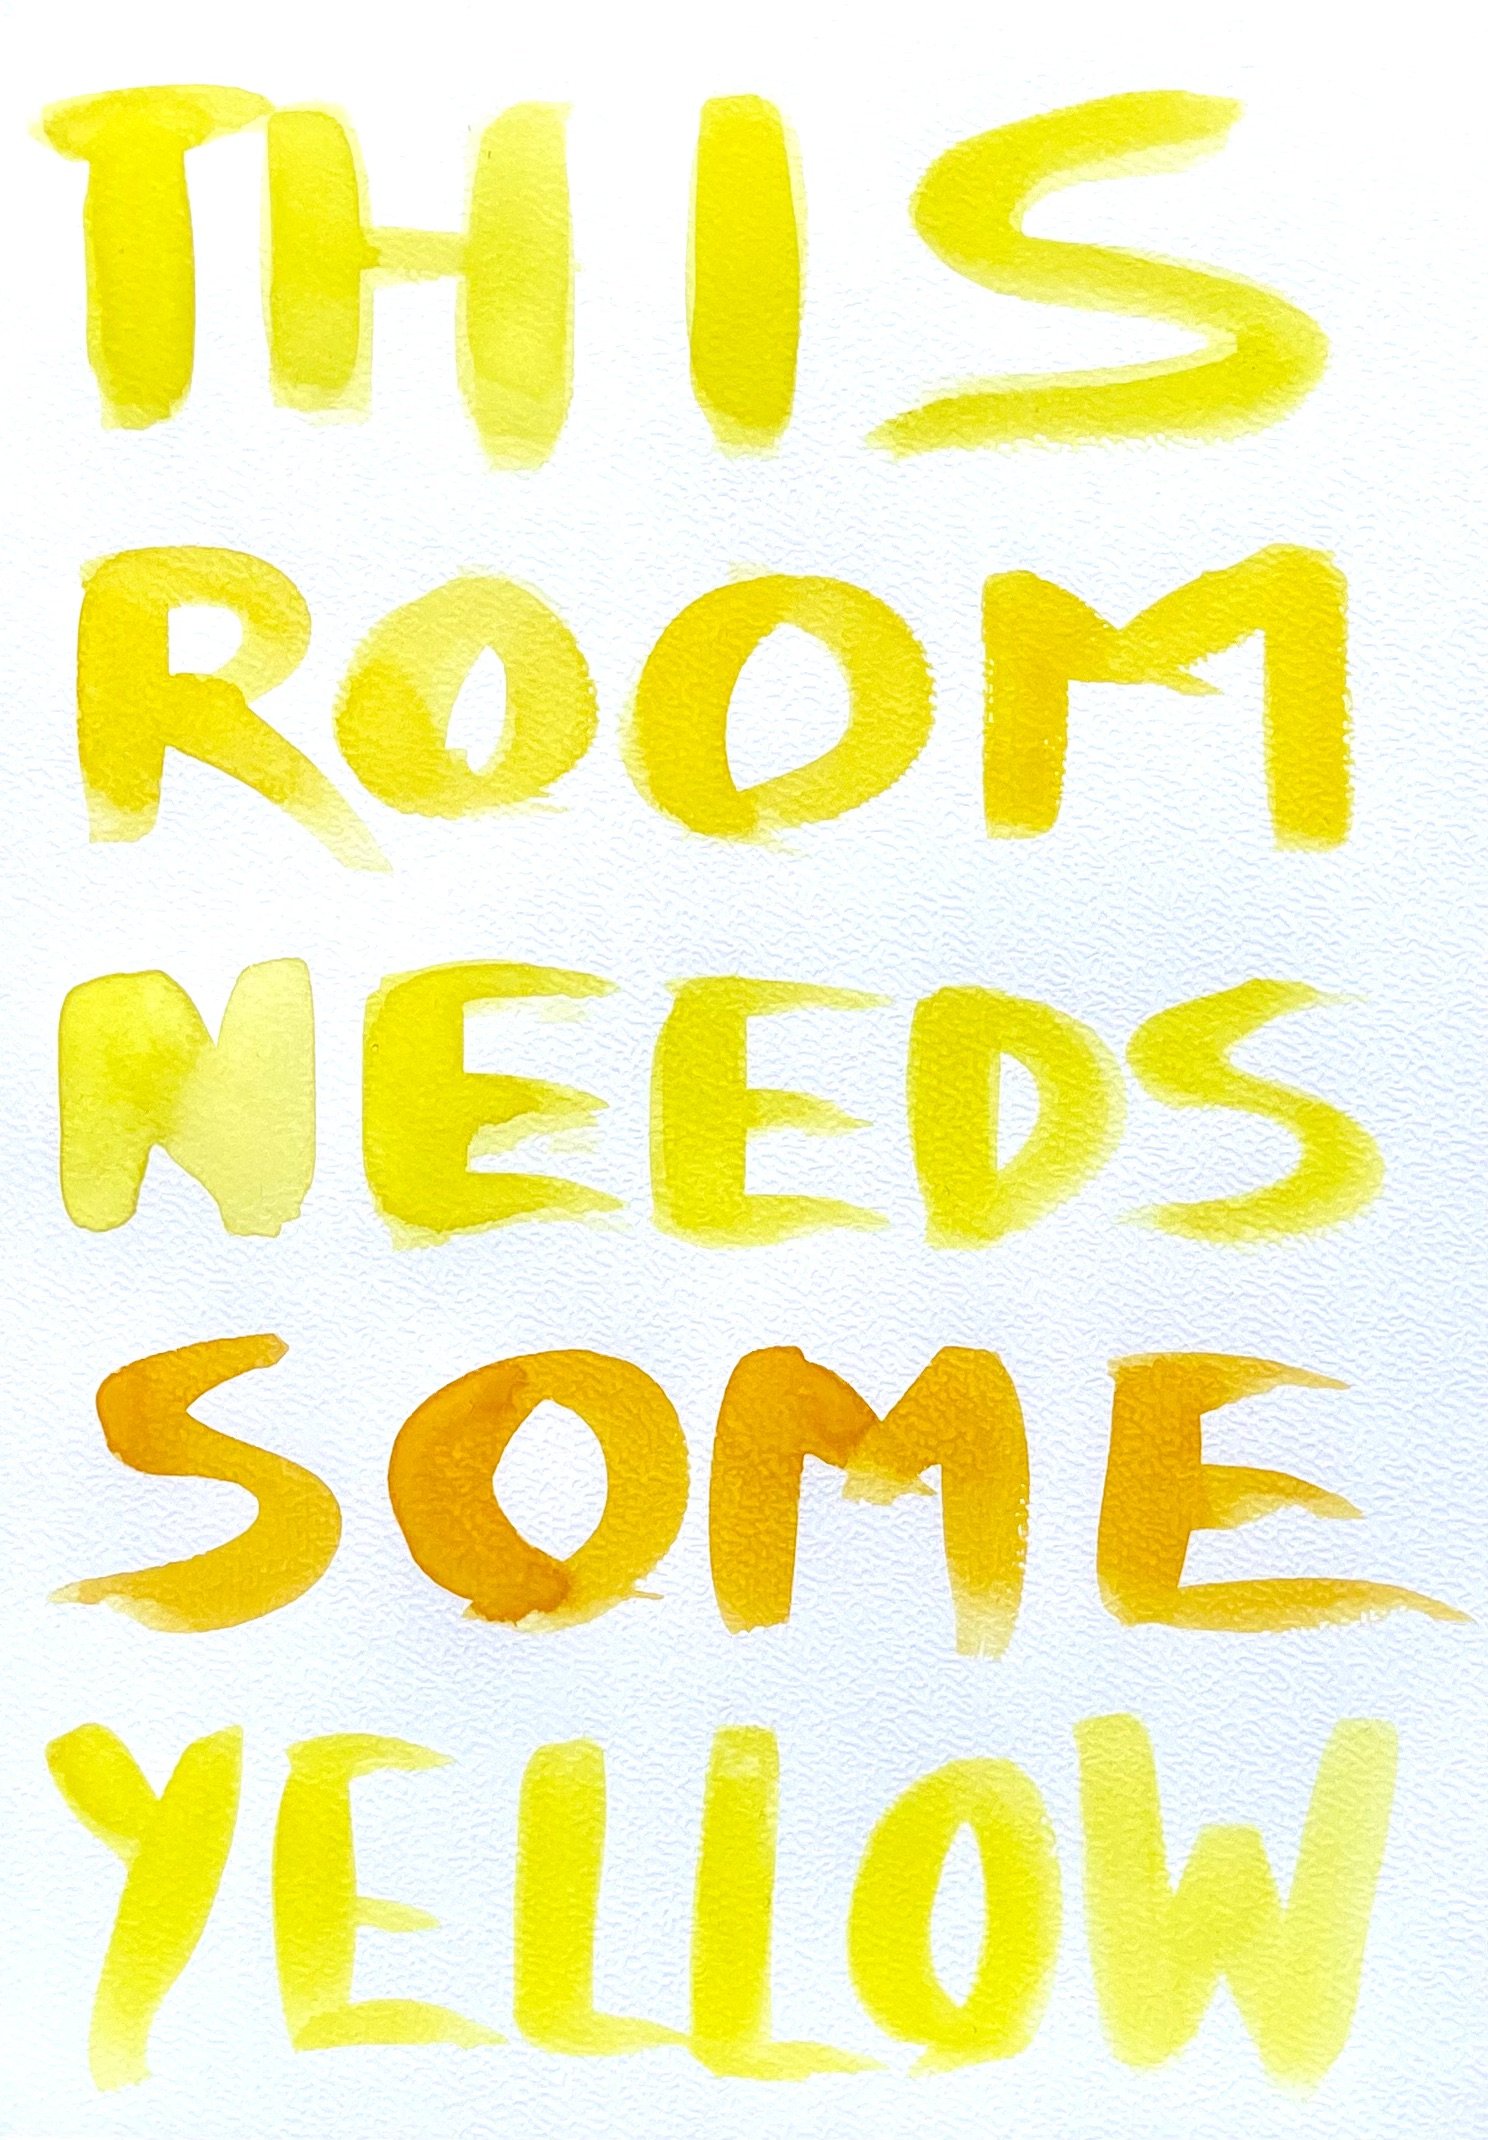 THIS
ROOM
NEEDS
SOME
YELLOW